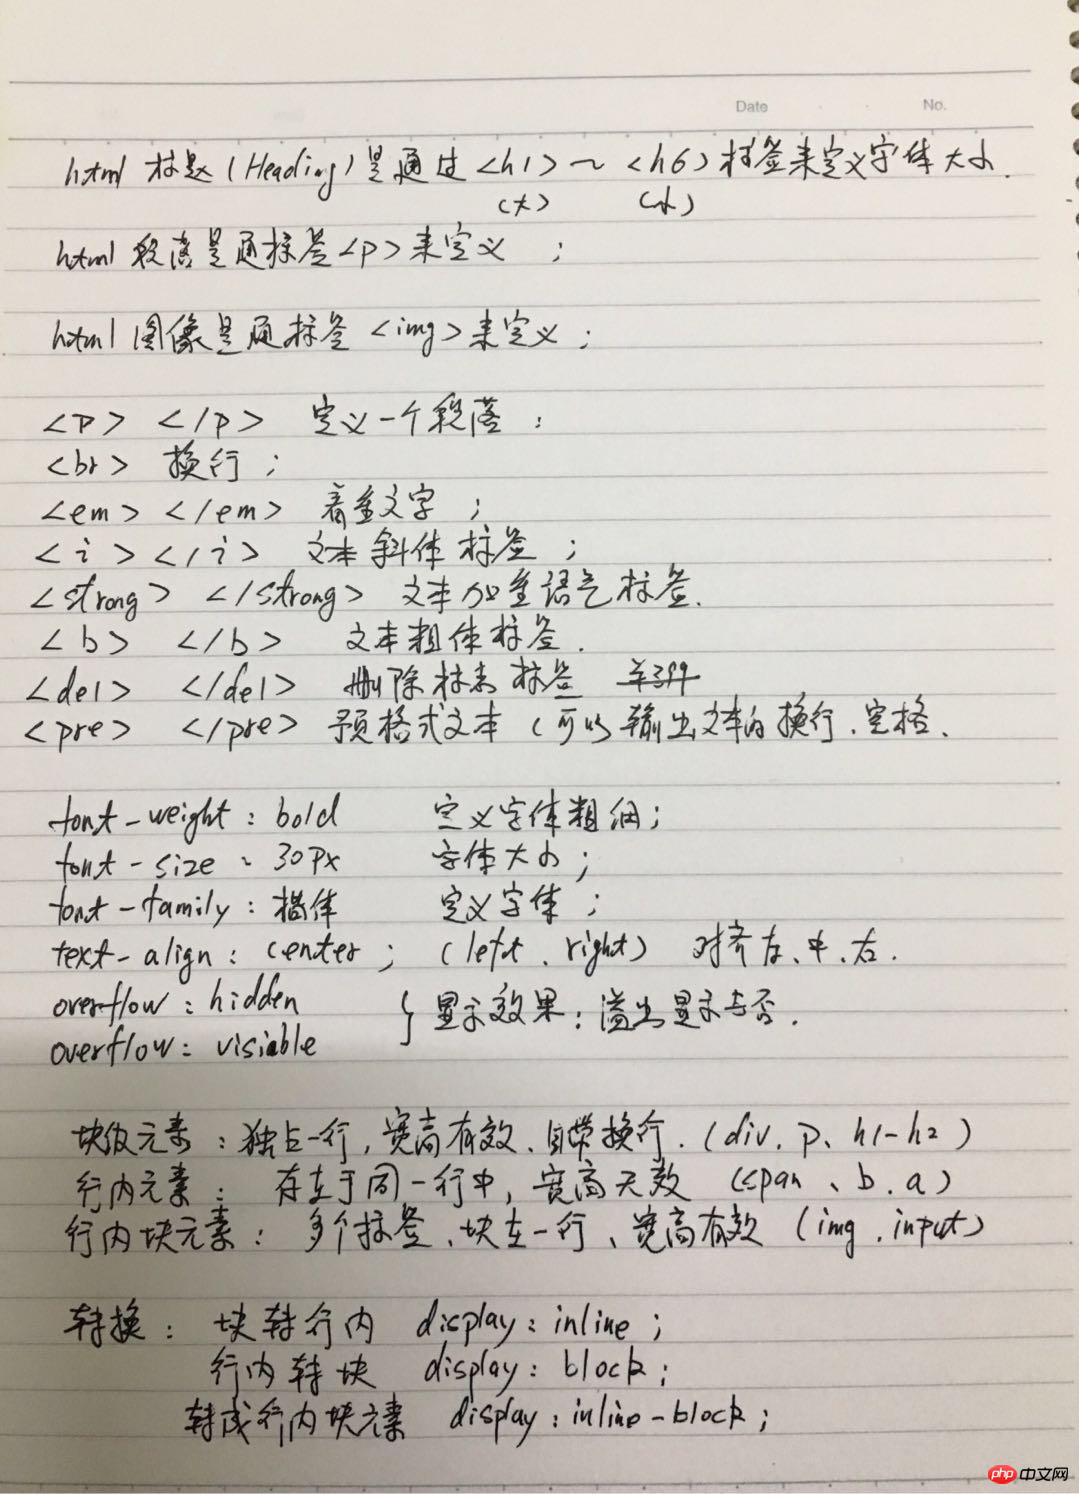 Date No.
html 标题(Heading)是通过<h1>～<h6>标签来定义字体大小.
(大) (小)
html 段落是通标签<p>来定义 ;
html 图像是通标签 <img>来定义 ;
<p> </p> 定义一个段落 ;
<br> 换行 ;
<em> </em> 着重文字 ;
<i> </i> 文本斜体标签 ;
<strong> </strong> 文本加重语气标签.
<b> </b> 文本粗体标签.
<del> </del> 删除标志 标签
<pre> </pre> 预格式文本 (可以输出文本的换行、空格.
font-weight : bold 定义字体粗细;
font-size : 30px 字体大小 ;
font-family : 楷体 定义字体 ;
text-align : center ; (left、right) 对齐左、中、右.
overflow : hidden
} 显示效果 : 溢出显示与否.
overflow : visiable
块级元素 : 独占一行, 宽高有效、自带换行. (div、p、h1-h2)
行内元素 : 存在于同一行中, 宽高无效 (span、b、a)
行内块元素 : 多个标签、块在一行、宽高有效 (img、input)
转换 : 块转行内 display : inline ;
行内转块 display : block ;
转成行内块元素 display : inline-block ;
php 中文网